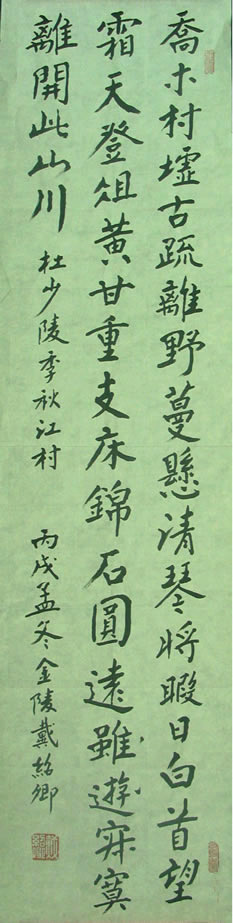 喬木村墟古疏離野蔓懸清琴將暇日白首望
霜天登俎黃甘重支床錦石圓遠雖遊寂寞
離開此山川 杜少陵季秋江村 丙戌孟冬金陵戴紹卿